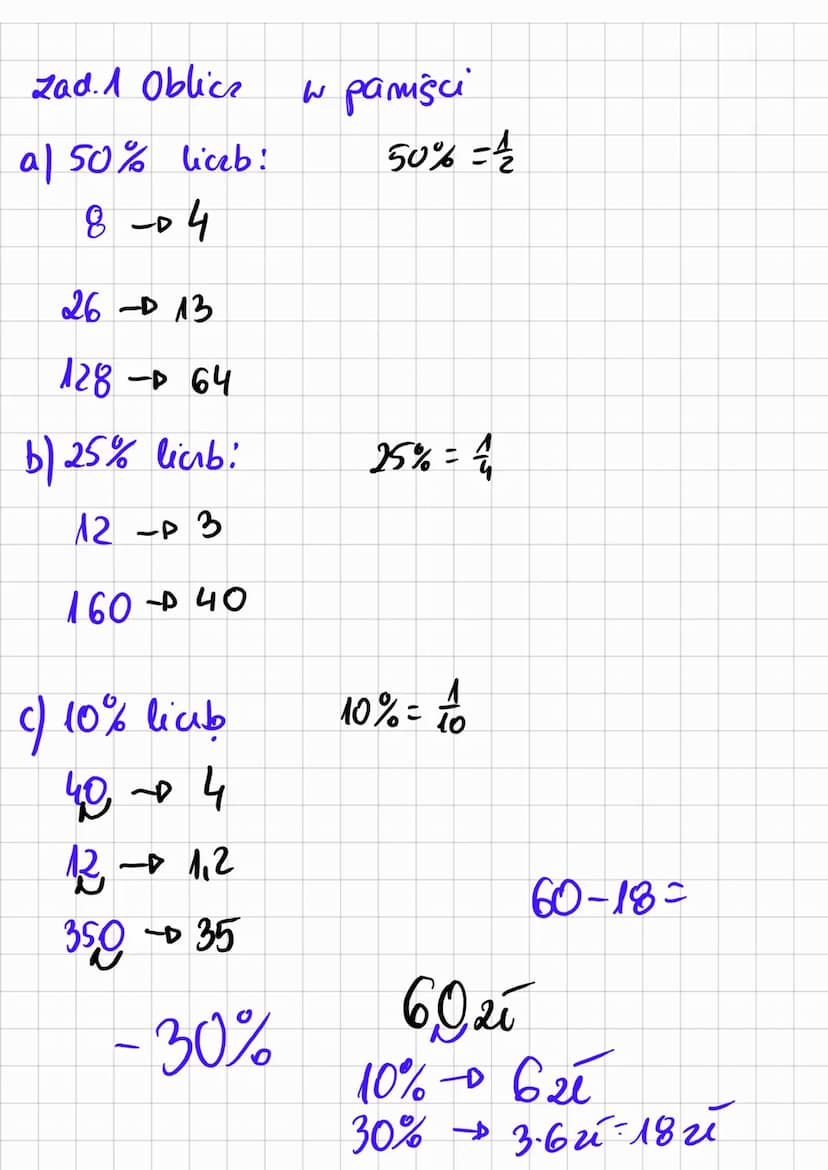 Zad.1 Oblicz w pamięci
a) 50% liczb: 50% = 1/2
8 → 4
26 → 13
128 → 64
b) 25% liczb: 25% = 1/4
12 → 3
160 → 40
c) 10% liczb 10% = 1/10
40, → 4
12, → 1,2
350 → 35
60-18=
-30% 60 zł
10% → 6 zł
30% → 3·6 zł = 18 zł